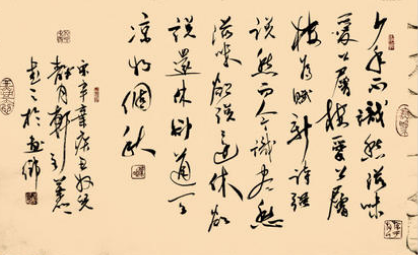 少年不識愁滋味
愛上層樓愛上層
樓為賦新詞強
說愁而今識盡愁
滋味欲說還休欲
說還休卻道天
涼好個秋
宋辛棄疾丑奴兒
月
書之於